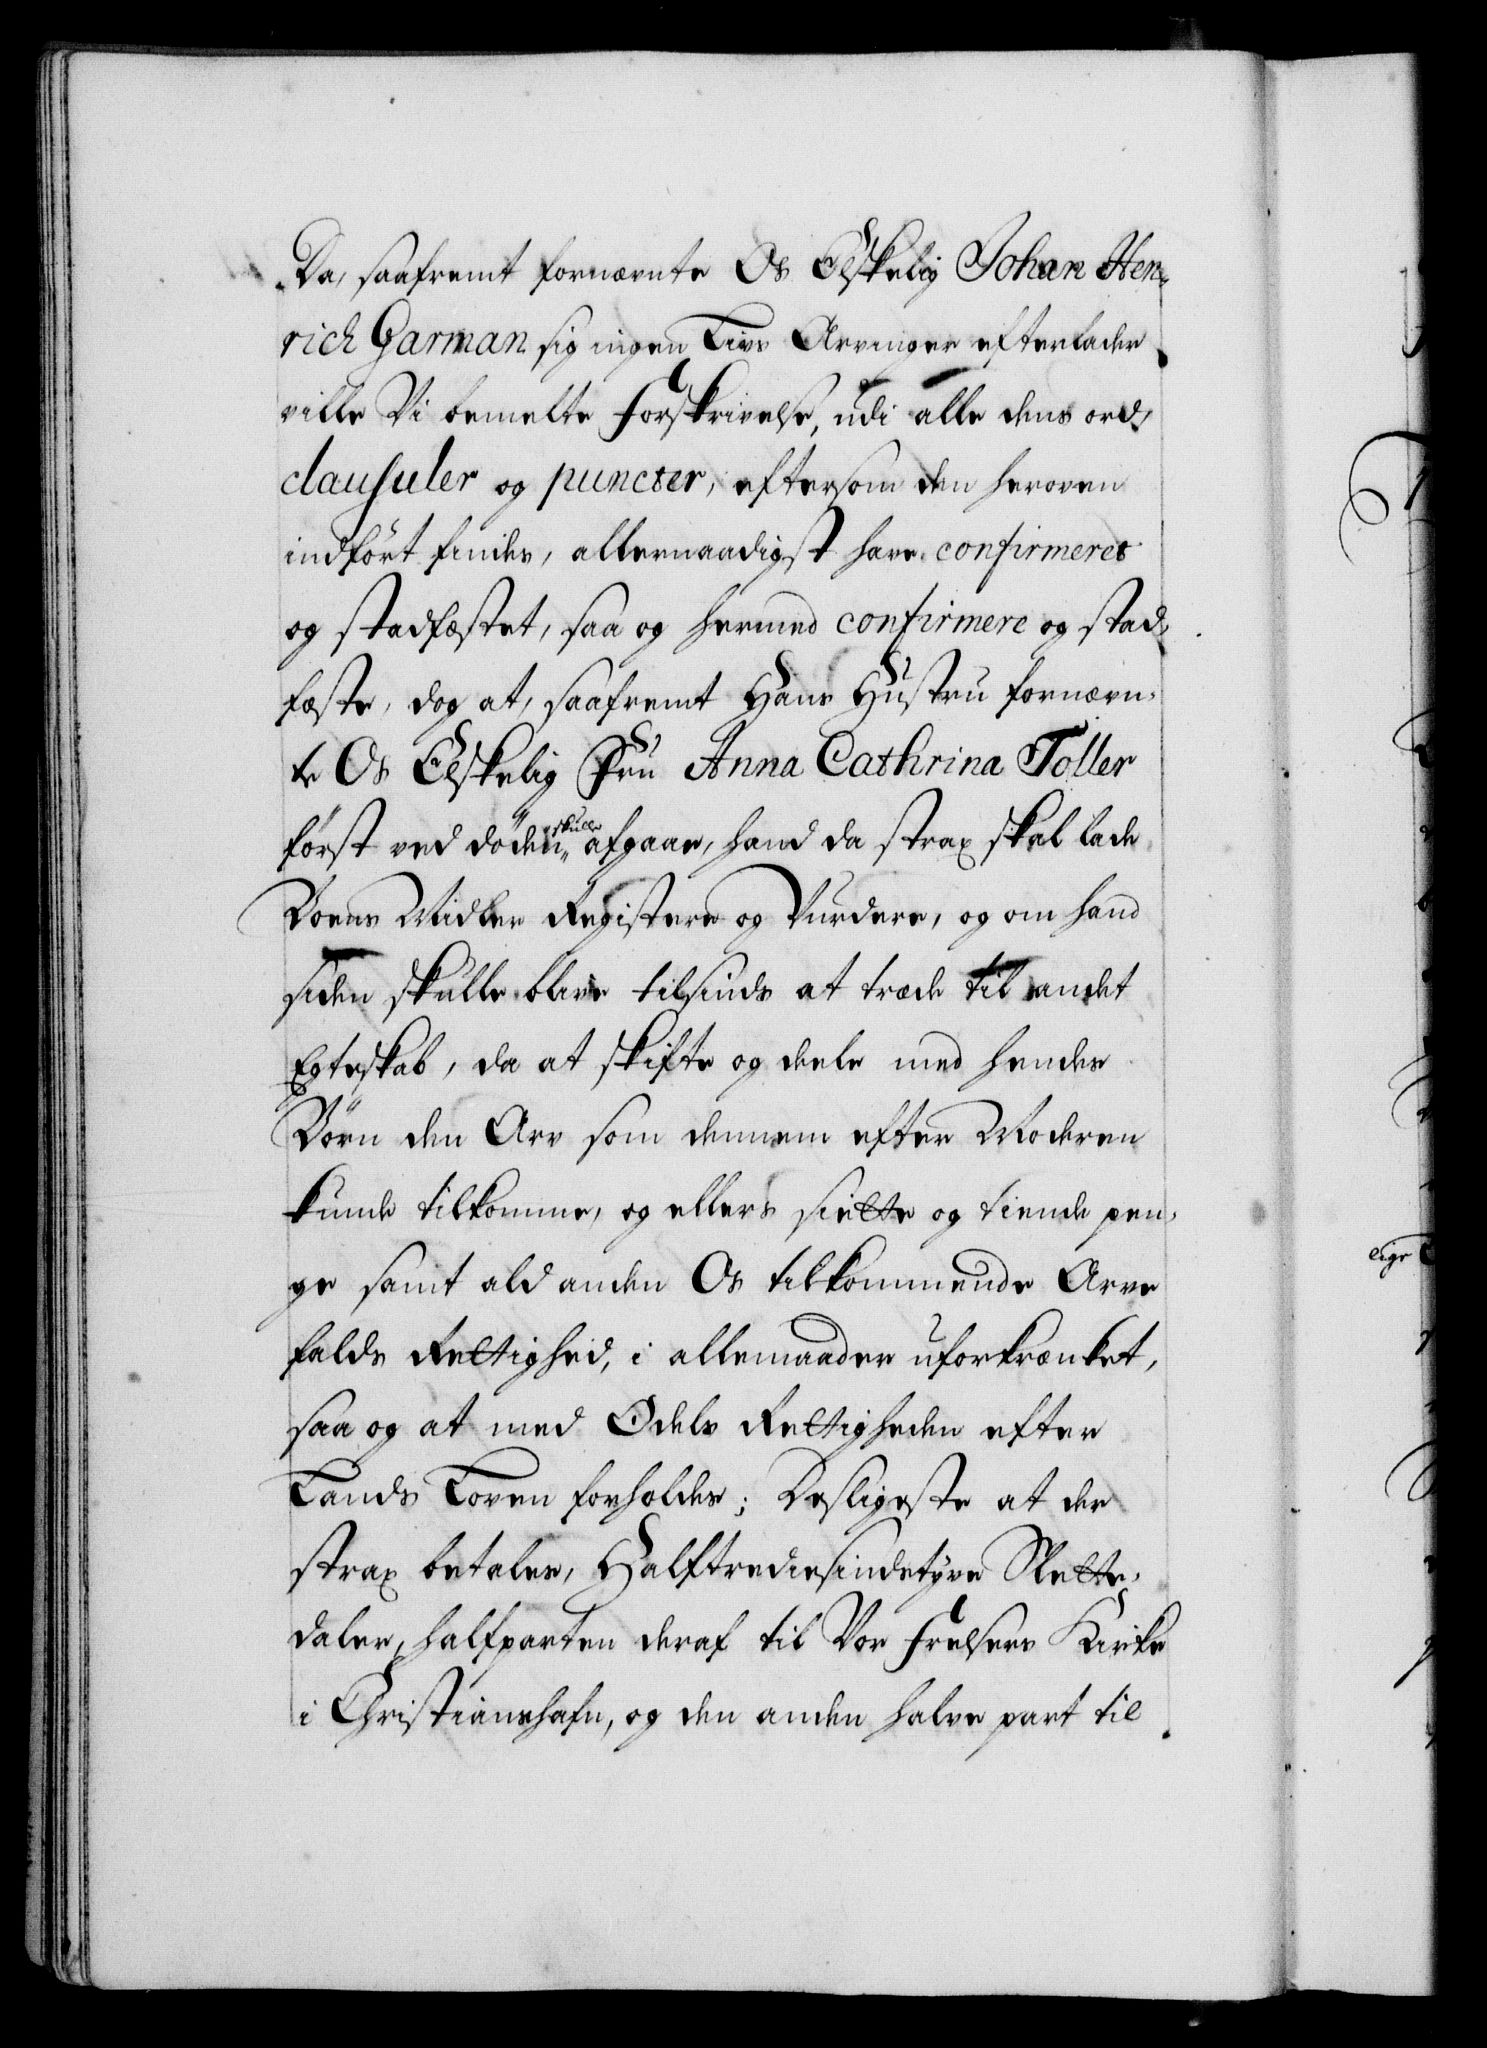 Da, saafremt fornævnte Os Elskelig Johan Hen-
rich Garman sig ingen Livs Arvinger efterlader
ville Vi bemelte Forskrivelse, udi alle dens ord,
clausuler og puncter, eftersom den heroven
indført findes, allernaadigst have confirmeret
og stadfæstet, saa og hermed confirmere og stad-
fæste, dog at, saafremt Hans Hustru fornævn-
te Os Elskelig Fru Anna Cathrina Toller
først ved døden skulle afgaae, hand da strax skal lade
Boens Midler Registere og Vurdere, og om hand
siden skulle blive tilsinds at træde til andet
Egteskab, da at skifte og deele med hendes
Børn den Arv som dennem efter Moderen
kunde tilkomme, og ellers siette og tiende pen-
ge samt ald anden Os tilkommende Arve
falds Rettighed, i allemaader uforkrænket,
saa og at med Odels Rettigheden efter
Lands Loven forholdes; Desligeste at der
strax betales, Halftrediesindetyve Slette-
daler, halfparten deraf til Vor Frelsers Kirke
i Christianshafn, og den anden halve part til
lige